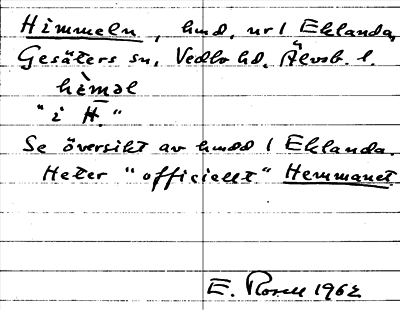 Himmeln, hmd, nr 1 Eklanda,
Gesäters sn, Vedbo hd, Älvsb. l.
hìməl
"i H̲."
Se översikt av hmdd i Eklanda.
Heter "officiellt" Hemmanet.
E. Rosell 1962